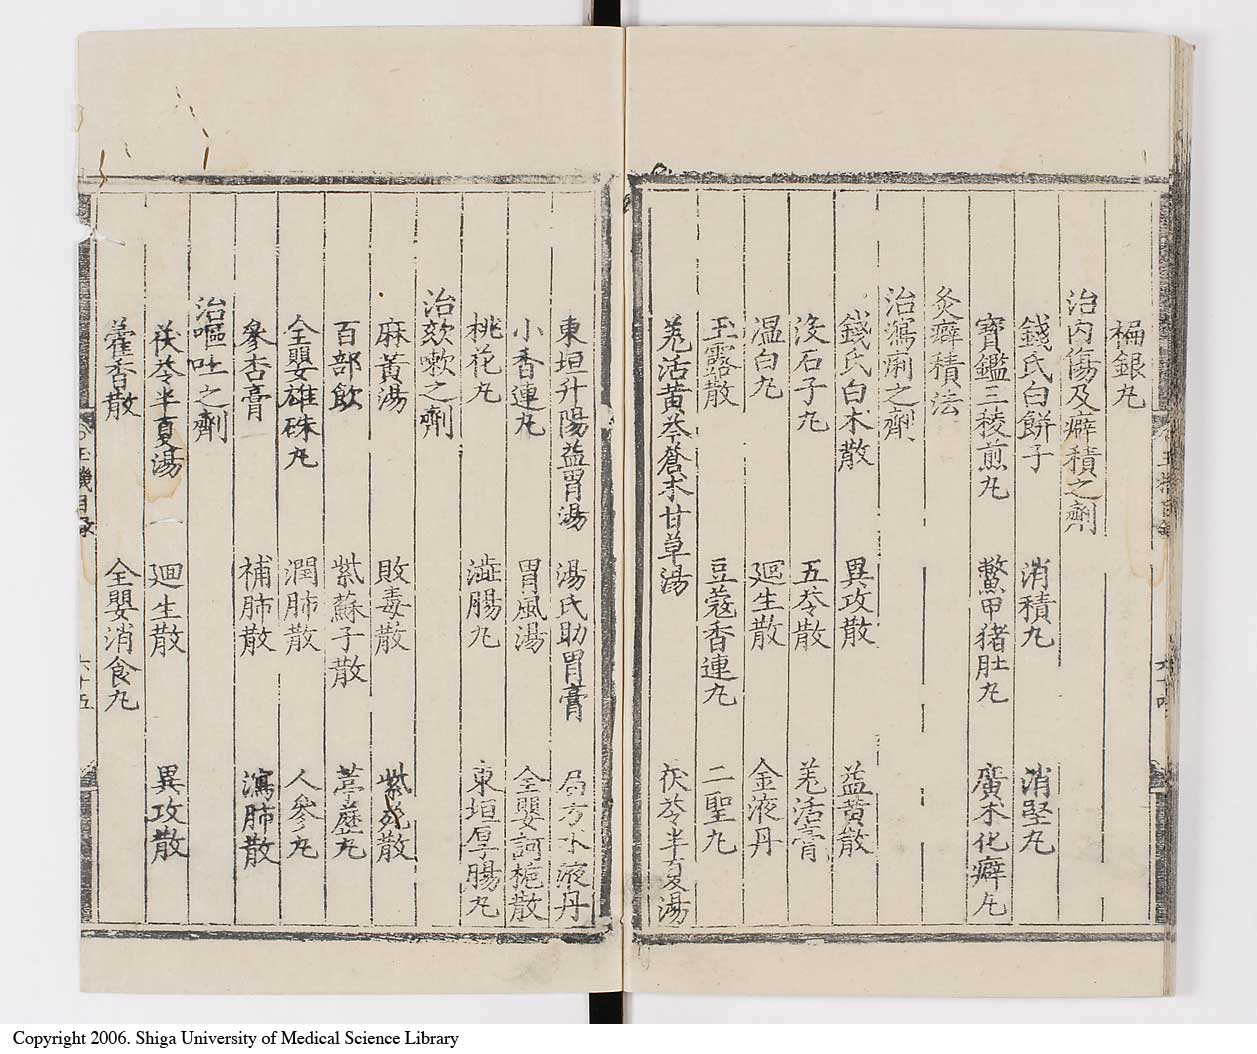 褊銀丸
治内傷及癖積之劑
錢氏白餅子 消積丸 消堅丸
寶鑑三稜煎丸 鱉甲猪肚丸 廣木化癖丸
灸癖積法
治瀉痢之劑
錢氏白术散 異攻散 益黃散
没石子丸 五苓散 羌活膏
温白丸 廻生散 金液丹
玉露散 豆蔻香連丸 二聖丸
羌活黄芩蒼术甘草湯 茯苓半夏湯
東垣升陽益胃湯 湯氏助胃膏 局方水液丹
小香連丸 胃風湯 全嬰訶梔散
桃花丸 澁腸丸 東垣厚腸丸
治欬嗽之劑
麻黃湯 敗毒散 紫菀散
百部飲 紫蘇子散 葶藶丸
全嬰雄硃丸 潤肺散 人參丸
參杏膏 補肺散 瀉肺散
治嘔吐之劑
茯苓半夏湯 廻生散 異攻散
藿香散 全嬰消食丸
玉機目录
六十五
Copyright 2006. Shiga University of Medical Science Library